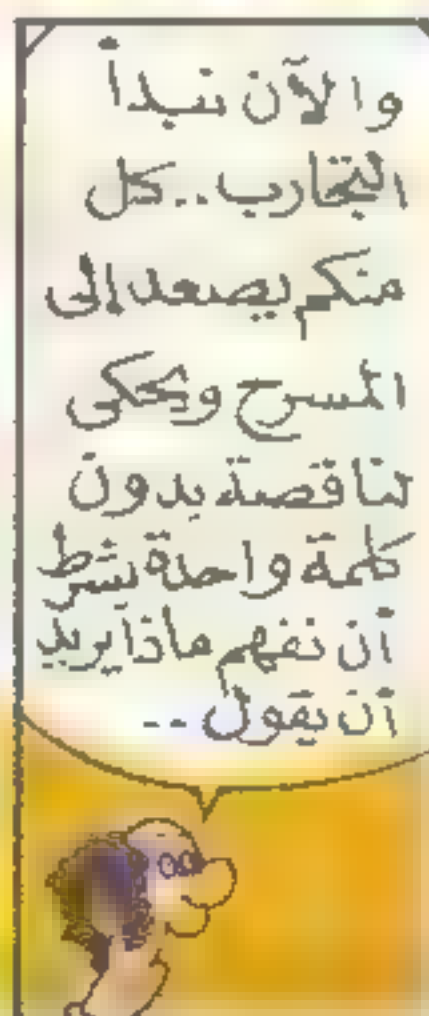 والآن نبدأ
التجارب.. كل
منكم يصعد إلى
المسرح ويحكى
لنا قصة بدون
كلمة واحدة بشرط
أن نفهم ماذا يريد
أن يقول..